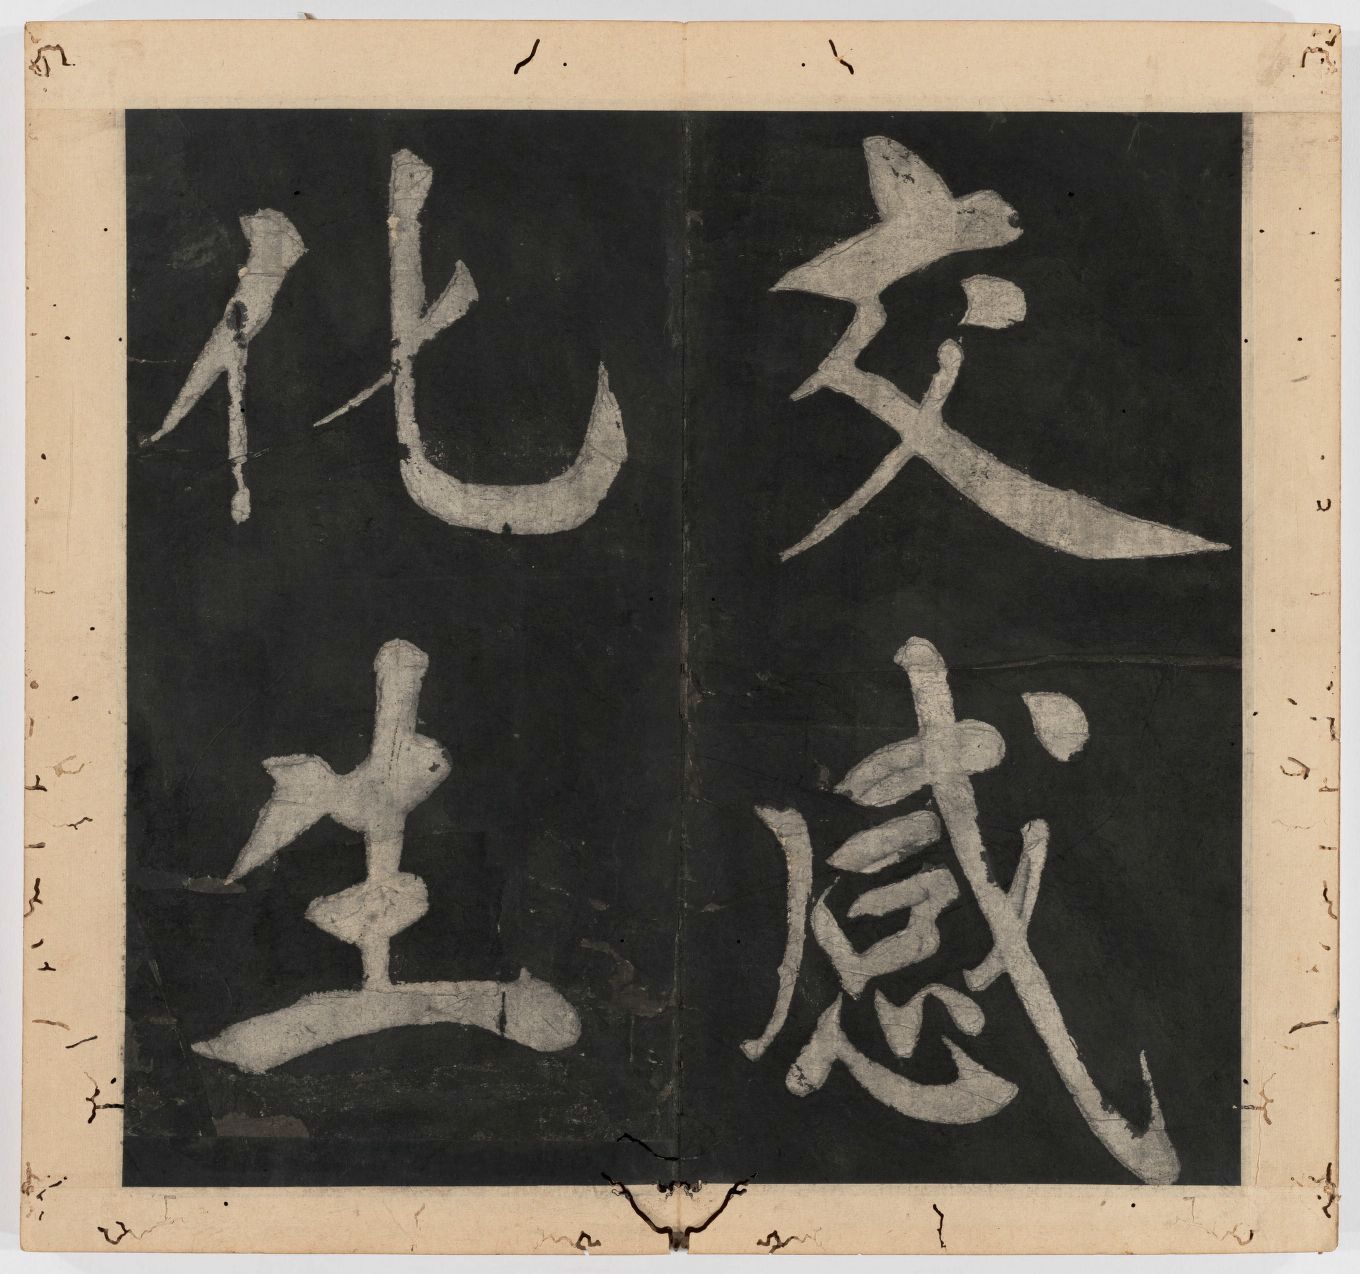 交感
化生